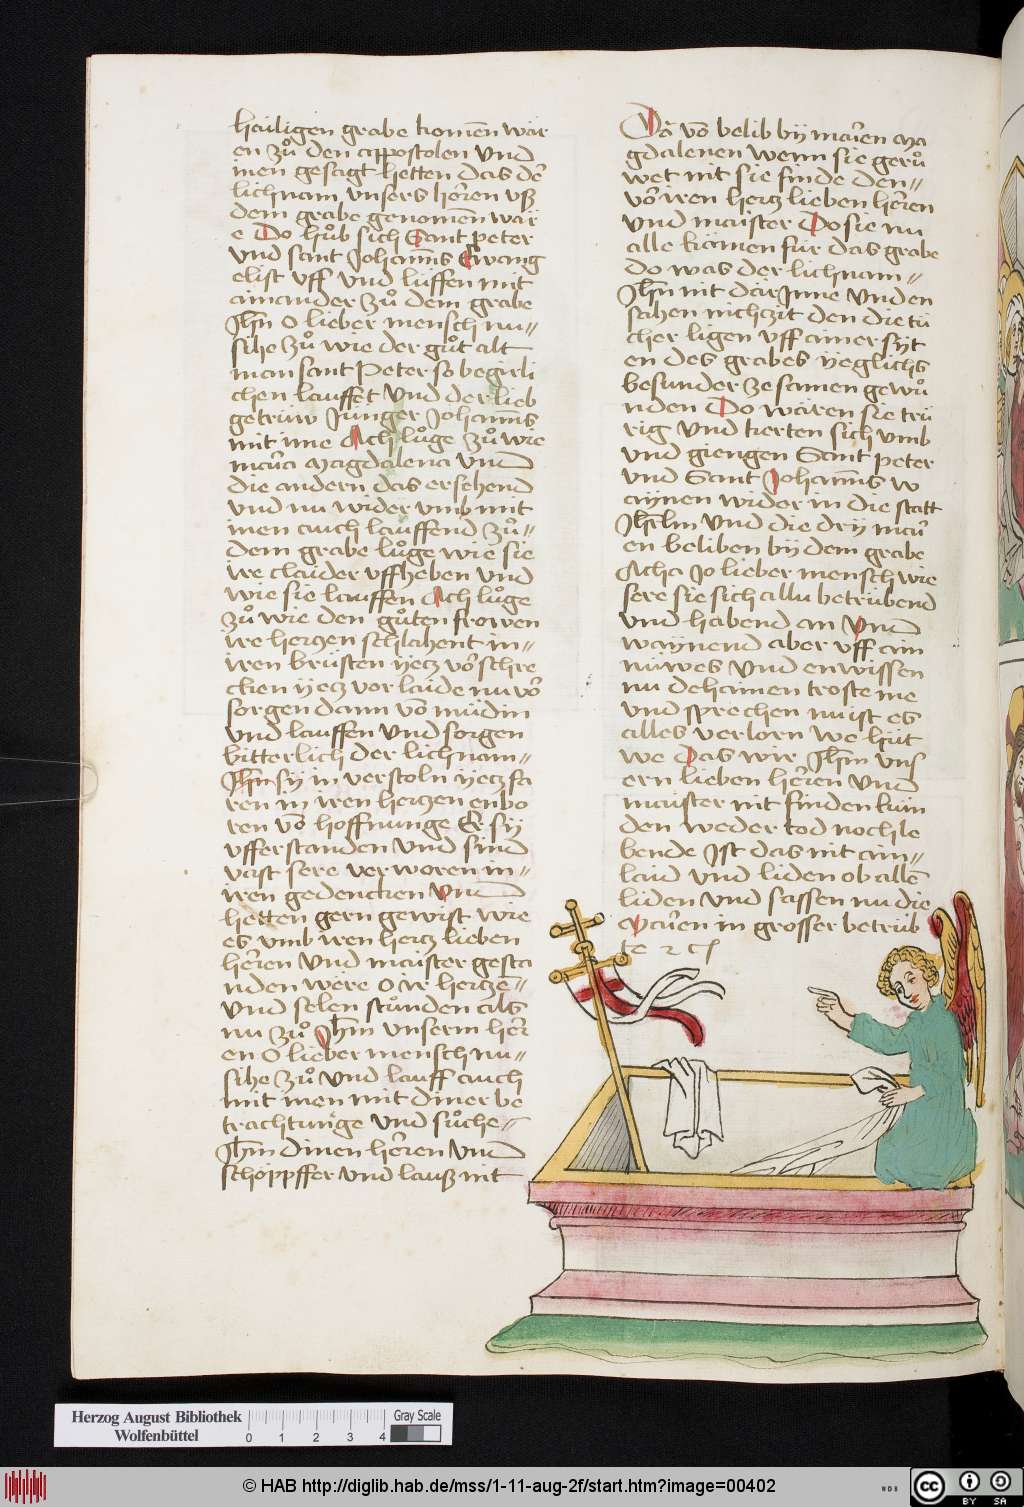 hailigen grabe komen wär
en zů den appostolen vnd
inen gesagt hetten das der̄
lichnam vnsers her̄en vß
dem grabe genomen wär
e Do hůb sich Sant peter
vnd sant Johanns Ewang
elist vff vnd lüffen mit
ainander zů dem grabe
Jhm̄ O lieber mensch nu⸗
sihe zů wie der gůt alt
man sant Peter so begirli
chen lauffet vnd der lieb
getrüw Jünger Johanns
mit ime Ach lůge zů wie
mar̄ia Magdalena vnd
die andern das ersehend
vnd nu wider vmb mit
inen auch lauffend zů⸗
dem grabe lůge wie sie
ire claider vffheben vnd
wie sie lauffen Ach lůge
zů wie den gůten frowen
ire herczen schlahent in⸗
iren brüsten yecz vor̄ schre
cken yecz vor laide nu vor̄
sorgen dann vō müdin
vnd lauffen vnd sorgen
bitterlich der lichnam⸗
Jhm̄ sy in verstoln yecz fa
ren in iren herczen enbo
ren vō hoffnunge Er sy
vfferstanden vnd sind
vast sere verworen in⸗
iren gedencken vnd
hetten gern gewist wie
es vmb iren hercz lieben
her̄en vnd maister gesta
nden were O ir hercze⸗
vnd selen stůnden als
nu zů Jhm̄ vnserm her̄r
en O lieber mensch nu⸗
sihe zů vnd lauff auch
mit inen mit diner be
trachtunge vnd sůche⸗
Jhm̄ dinen her̄en vnd
schöppffer vnd lauß nit
Da vō belib by mar̄ien Ma
gdalenen wenn sie gerů
wet nit sie finde den⸗
vor̄ iren hercz lieben her̄en
vnd maister Do sie nu
alle kämen für das grabe
do was der lichnam⸗
Jhm̄ nit där Jnne vnd en
sahen nichczit den die tü
cher ligen vff ainer syt
en des grabes yeglichs
besunder ze samen gewů
nden Do wären sie trü
rig vnd kerten sich vmb
vnd giengen Sant peter
vnd Sant Johanns w
aynen wider in die statt
Jhrlm vnd die dry mar̄i
en beliben by dem grabe
Acha Jo lieber mensch wie
sere sie sich allu betrübend
vnd habend an vnd
waynend aber vff ain
nüwes vnd enwissen
nu dehainen troste me
vnd sprechen nu ist es
alles verlorn we hüt
we Das wir Jhm̄ vns
ern lieben her̄en vnd
maister nit finden kün
den weder tod noch le
bende Jst das nit ain⸗
laid vnd liden ob allē
liden vnd sassen nu die
Mar̄ien in grosser betrüb
te
Herzog August Bibliothek
Wolfenbüttel
0 1 2 3 4
Gray Scale
© HAB http://diglib.hab.de/mss/1-11-aug-2f/start.htm?image=00402
WDB
cc BY SA